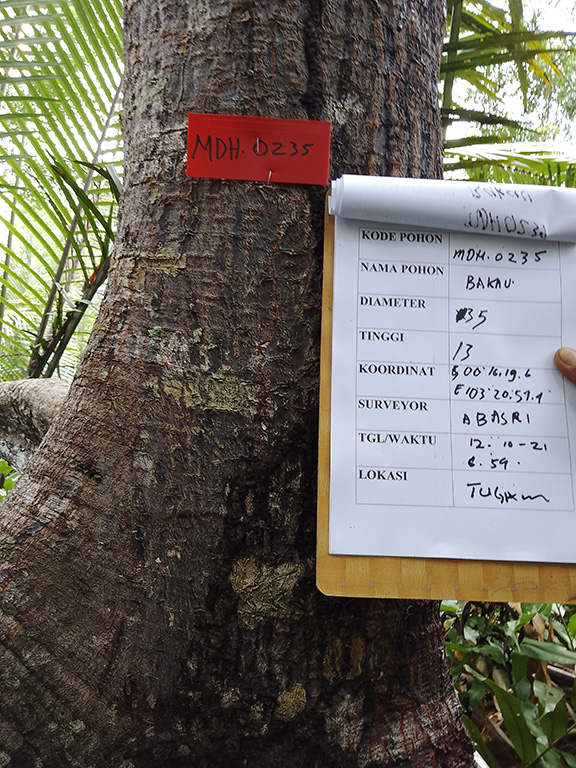 MDH. 0235
KODE POHON MDH. 0235
NAMA POHON BAKAU
DIAMETER 35
TINGGI 13
KOORDINAT 00°16.19.6
E 103°20.57.9
SURVEYOR ABASRI
TGL/WAKTU 12. 10-21
6.59.
LOKASI